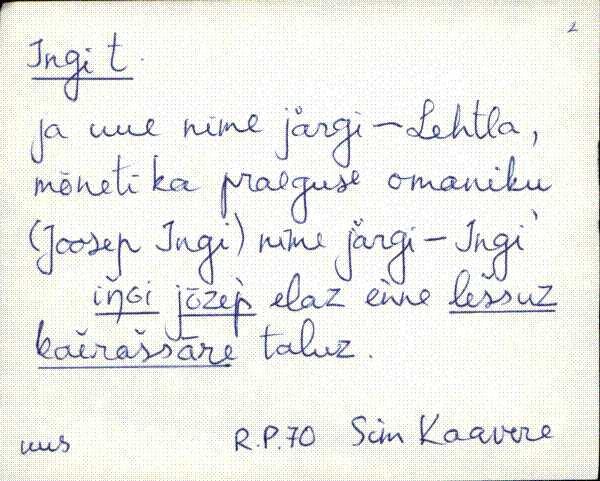 2
Ingi t.
ja uue nime järgi – Lehtla,
mõneti ka praeguse omaniku
(Joosep Ingi) nime järgi – Ingi
iŋ́ǵi jōzep̀ elaz enne lešsuz
kaĕrašsāre taluz.
uus R.P.70 Siim Kaavere